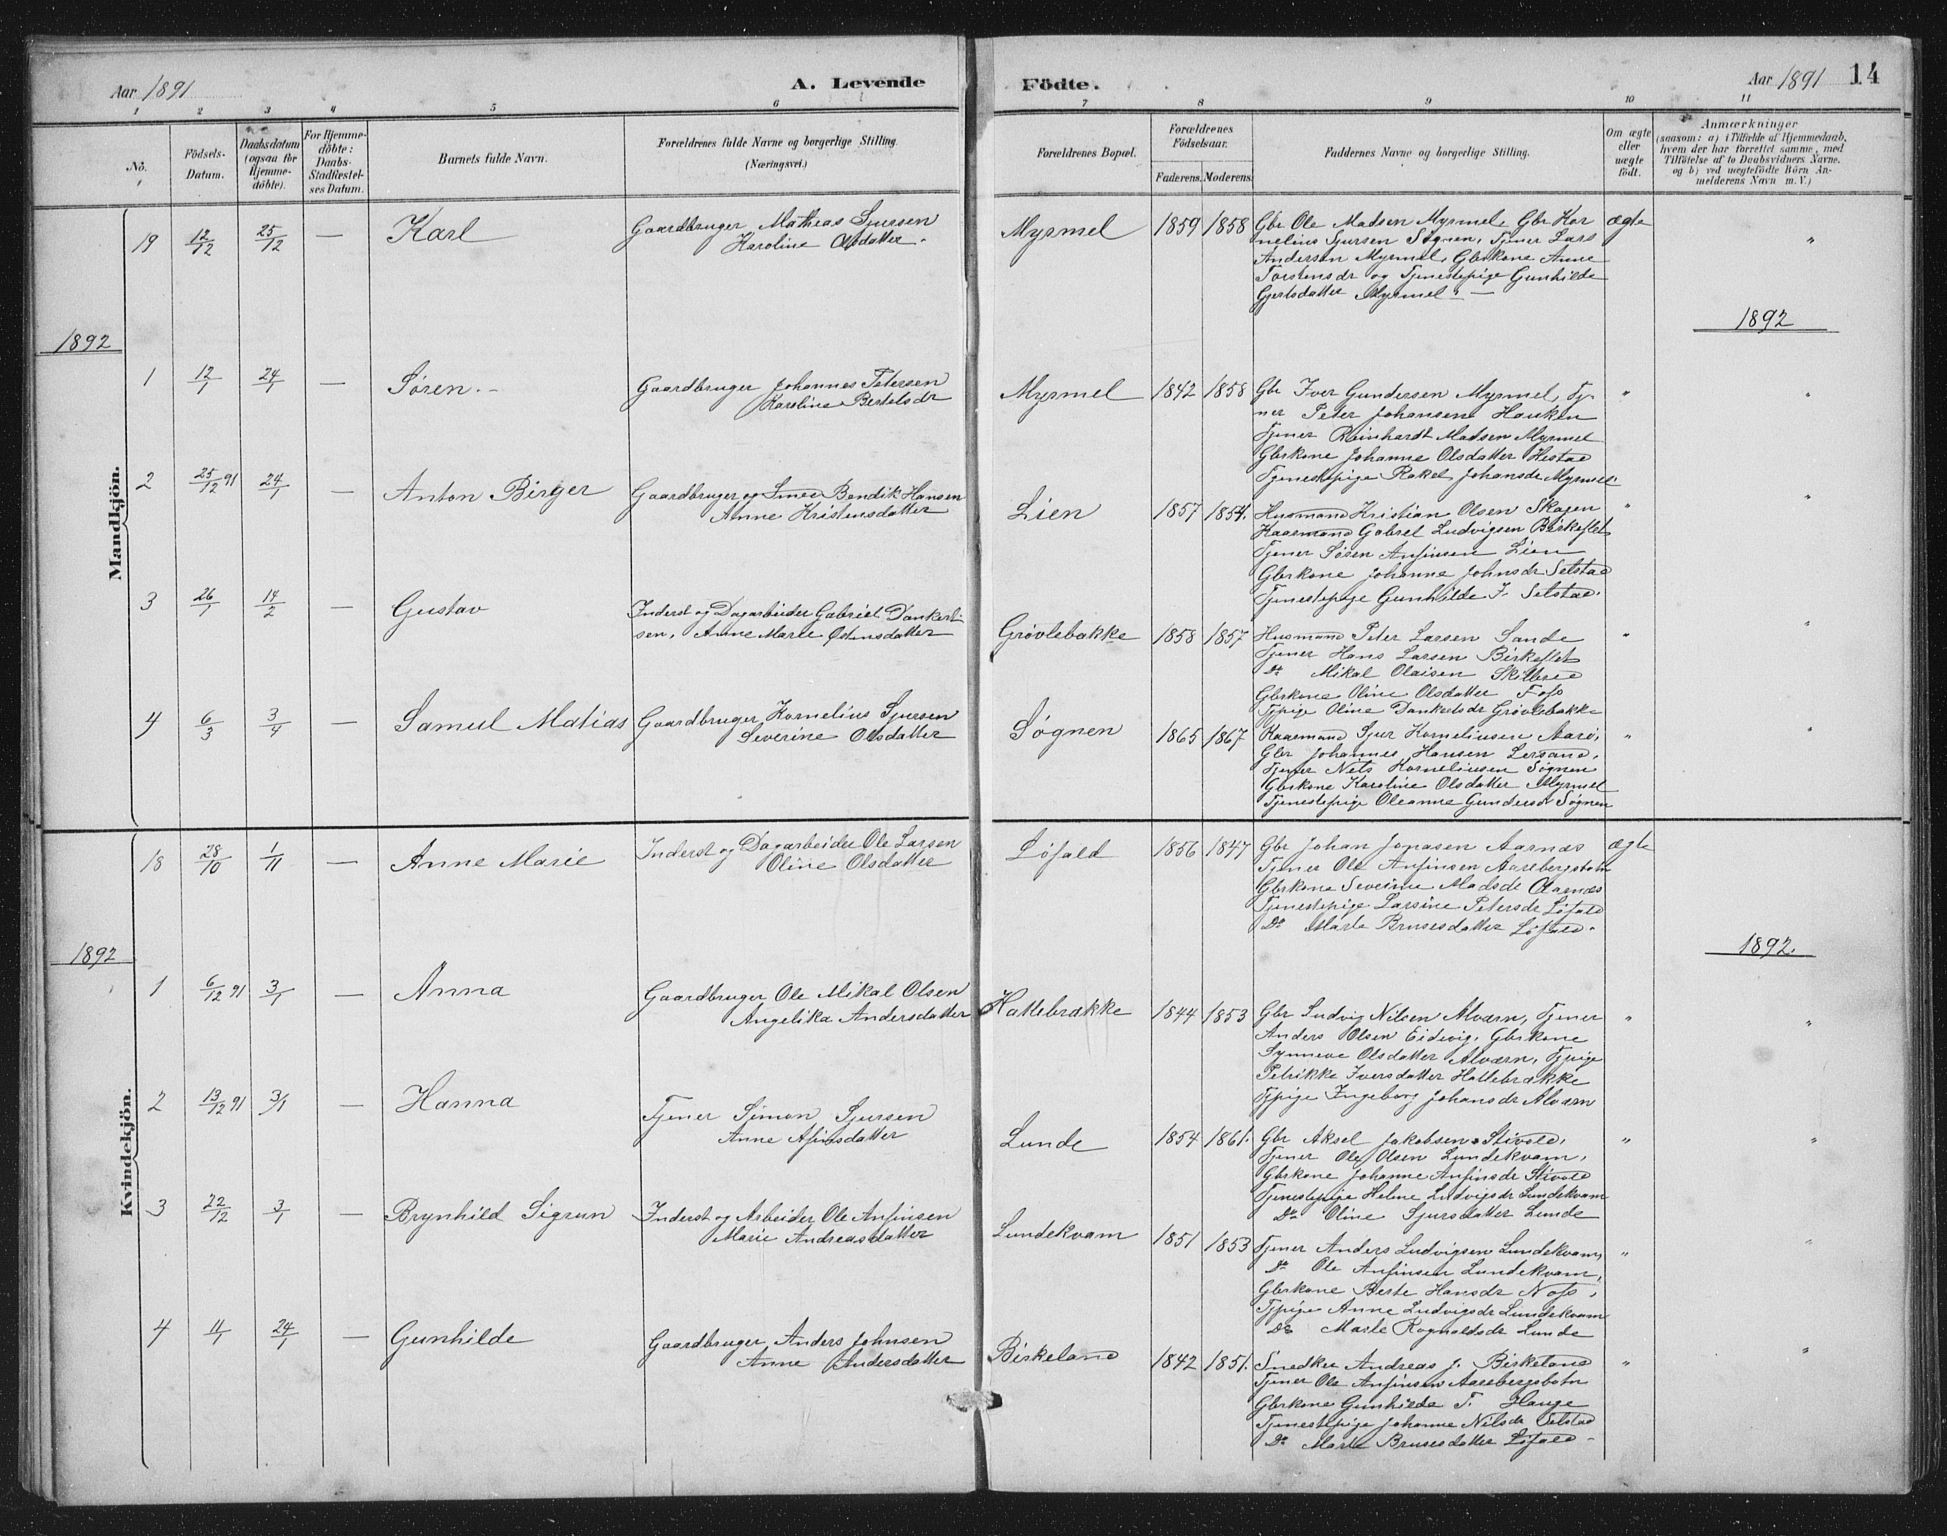 Aar 1891
A. Levende
Födte.
Aar 1891
14
1 2 3 4 5 6 7 8 9 10 11
No.
Födsels-Datum.
Daabsdatum (ogsaa for Hjemme-döbte).
For Hjemme-döbte: Daabs-Stadfæstel-ses Datum.
Barnets fulde Navn.
Forældrenes fulde Navne og borgerlige Stilling.
(Næringsvei.)
Forældrenes Bopæl.
Forældrenes Födselsaar.
Faderens. Moderens.
Faddernes Navne og borgerlige Stilling.
Om ægte eller uægte födt.
Anmærkninger
(saasom: a) i Tilfælde af Hjemmedaab,
hvem der har forrettet samme, med
Tilföielse af to Daabsvidners Navne,
og b) ved uægtefödte Börn An-
melderens Navn m. V.)
Mandkjön.
19 12/12 25/12 — Karl Gaardbruger Mathias Sjursen
Karoline Olsdatter.
Myrmel 1859 1858 Gbr Ole Madsen Myrmel, Gbr Kor ægte "
nelius Sjursen Søgnen, Tjener Lars
Andersen Myrmel, Gbrkone Anne
Torstensdr og Tjenestepige Gunhilde
Gjertsdatter Myrmel. —
1892
1892
1 12/1 24/1 — Søren. — Gaardbruger Johannes Petersen
Karoline Bertelsdr
Myrmel 1842 1858 Gbr Iver Gundersen Myrmel, Tje- " "
ner Peter Johansen Hauken
Tjener Reinhardt Madsen Myrmel
Gbrkone Johanne Olsdatter Hestad
Tjenestepige Rakel Johansdr Myrmel.
2 25/12 91 24/1 — Anton Birger Gaardbruger og Smed Bendik Hansen
Anne Kristensdatter
Lien 1857 1854. Husmand Kristian Olsen Skagen " "
Kaarmand Gabrel Ludvigsen Birkeflet
Tjener Søren Anfinsen Lien
Gbrkone Johanne Johnsdr Selstad
Tjenestepige Gunhilde J. Selstad.
3 26/1 14/2 — Gustav Inderst og Dagarbeider Gabriel Dankert-
sen, Anne Marie Østensdatter
Grøvlebakke 1858 1857 Husmand Peter Larsen Sande " "
Tjener Hans Larsen Birkeflet
Do Mikal Olaisen Skilbred
Gbrkone Oline Olsdatter Foss
Tjpige Oline Dankertsdr Grøvlebakke
4 6/3 3/4 — Samuel Matias Gaardbruger Kornelius Sjursen
Severine Olsdatter
Søgnen 1865 1867 Kaarmand Sjur Korneliusen Aarø, " "
Gbr Johannes Hansen Lersand,
Tjener Nils Korneliusen Søgnen
Gbrkone Karoline Olsdatter Myrmel
Tjenestepige Oleanne Gundersdr Søgnen
Kvindekjön.
18 28/10 1/11 — Anne Marie Inderst og Dagarbeider Ole Larsen
Oline Olsdatter
Løfald 1856 1847 Gbr Johan Jonasen Aarnæs ægte
Tjener Ole Anfinsen Aarebergsbotn
Gbrkone Severine Madsdr Aarnæs
Tjenestepige Larsine Petersdr Løfald
Do Marte Brusesdatter Løfald.
1892
1892.
1 6/12 91 3/1 — Anna Gaardbruger Ole Mikal Olsen
Angelika Andersdatter
Hattebrække 1844 1853 Gbr Ludvig Nilsen Alværn, Tjener " "
Anders Olsen Eidevig, Gbrkone
Synneve Olsdatter Alværn, Tjpige
Petrikke Iversdatter Hattebrække
Tjpige Ingeborg Johansdr Alværn
2 13/12 91 3/1 — Hanna Tjener Simon Sjursen
Anne Afinsdatter
Lunde 1854 1861. Gbr Aksel Jakobsen Stivold, " "
Tjener Ole Olsen Lundekvam,
Gbrkone Johanne Anfinsdr Stivold
Tjenestepige Helene Ludvigsdr Lundekvam
Do Oline Sjursdatter Lunde
3 22/12 3/1 — Brynhild Sigrun Inderst og Arbeider Ole Anfinsen
Marie Andreasdatter
Lundekvam 1851 1853 Tjener Anders Ludvigsen Lundekvam, " "
Do Ole Anfinsen Lundekvam,
Gbrkone Berte Hansdr Noss,
Tjpige Anne Ludvigsdr Lundekvam
Do Marte Rognaldsdr Lunde
4 11/1 24/1 — Gunhilde Gaardbruger Anders Johnsen
Anne Andersdatter
Birkeland 1842 1851. Snedker Andreas J. Birkeland " "
Tjener Ole Anfinsen Aarebergsbotn
Gbrkone Gunhilde T. Hauge
Tjenestepige Johanne Nilsdr Selstad
Do Marte Brusesdatter Løfald.